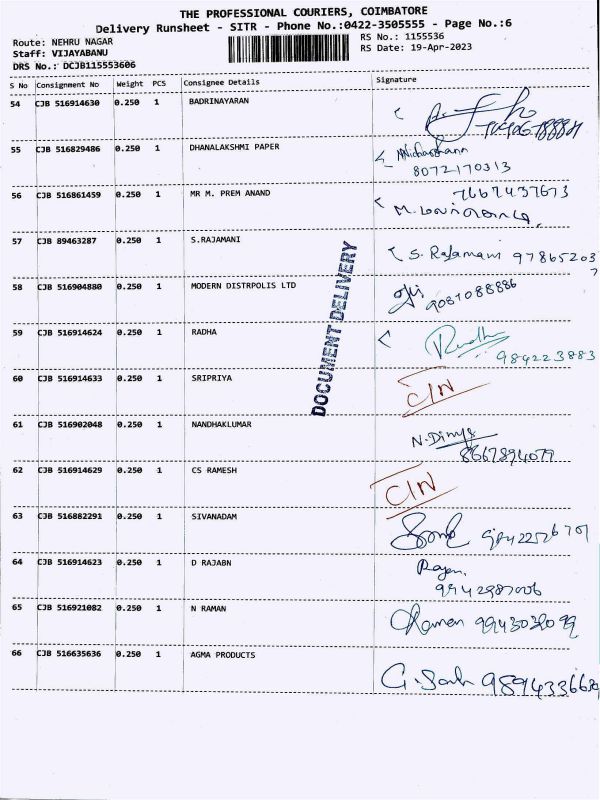 THE PROFESSIONAL COURIERS, COIMBATORE
Delivery Runsheet - SITR - Phone No.:0422-3505555 - Page No.:6
Route: NEHRU NAGAR
RS No.: 1155536
Staff: VIJAYABANU
RS Date: 19-Apr-2023
DRS No.: DCJB115553606
S No Consignment No Weight PCS Consignee Details Signature
54 CJB 516914630 0.250 1 BADRINAYARAN
55 CJB 516829486 0.250 1 DHANALAKSHMI PAPER
8072170313
56 CJB 516861459 0.250 1 MR M. PREM ANAND 7667437673
57 CJB 89463287 0.250 1 S.RAJAMANI
S. Rajamani 978652037
58 CJB 516904880 0.250 1 MODERN DISTRPOLIS LTD
9081088886
DOCUMENT DELIVERY
59 CJB 516914624 0.250 1 RADHA
Radha
989223883
60 CJB 516914633 0.250 1 SRIPRIYA
C/N
61 CJB 516902048 0.250 1 NANDHAKLUMAR
N. Dinya
8667894079
62 CJB 516914629 0.250 1 CS RAMESH
C/N
63 CJB 516882291 0.250 1 SIVANADAM
64 CJB 516914623 0.250 1 D RAJABN
65 CJB 516921082 0.250 1 N RAMAN
Raman
66 CJB 516635636 0.250 1 AGMA PRODUCTS